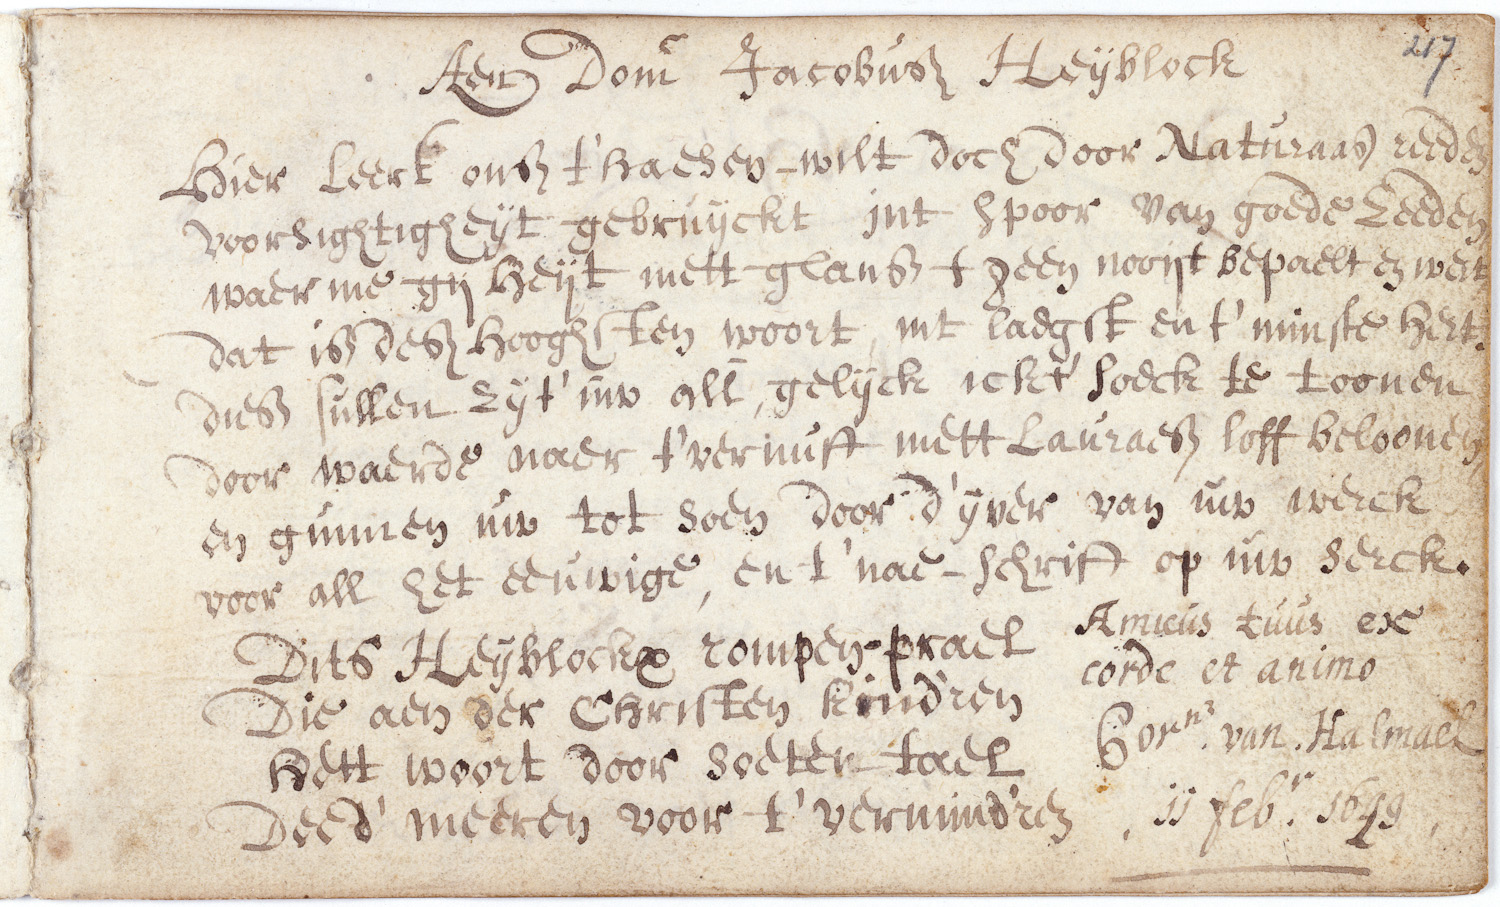 217
Aen Dom͠ Jacobus Heÿblock
Hier Leert ons t'haesen-wilt doch door Naturaas reeden
voorsightigheÿt gebruÿckt jnt spoor van goede Zeeden
waer me gij Heijt mett glans t geen nooijt bepaelt en wert
dat is des Hooghsten woort, int laegst en t' minste Hert.
dies sullen Zÿ t' uw all, gelÿck ick t' soeck te toonen
door waerde naer t'vernuft mett Lauraes loff beloonen,
en gunnen uw tot soen door d'ÿver van uw werck
voor all het eeuwige, en t' nae-schrift op uw serck.
Dits Heÿblockx rompen-prael
Die aen der Christen kind'ren
Hett woort door soeter tael
Deed' meeren voor t' vermind'ren
Amicus tuus ex
corde et animo
Corn⁠s. van. Halmael
11 feb.r 1649